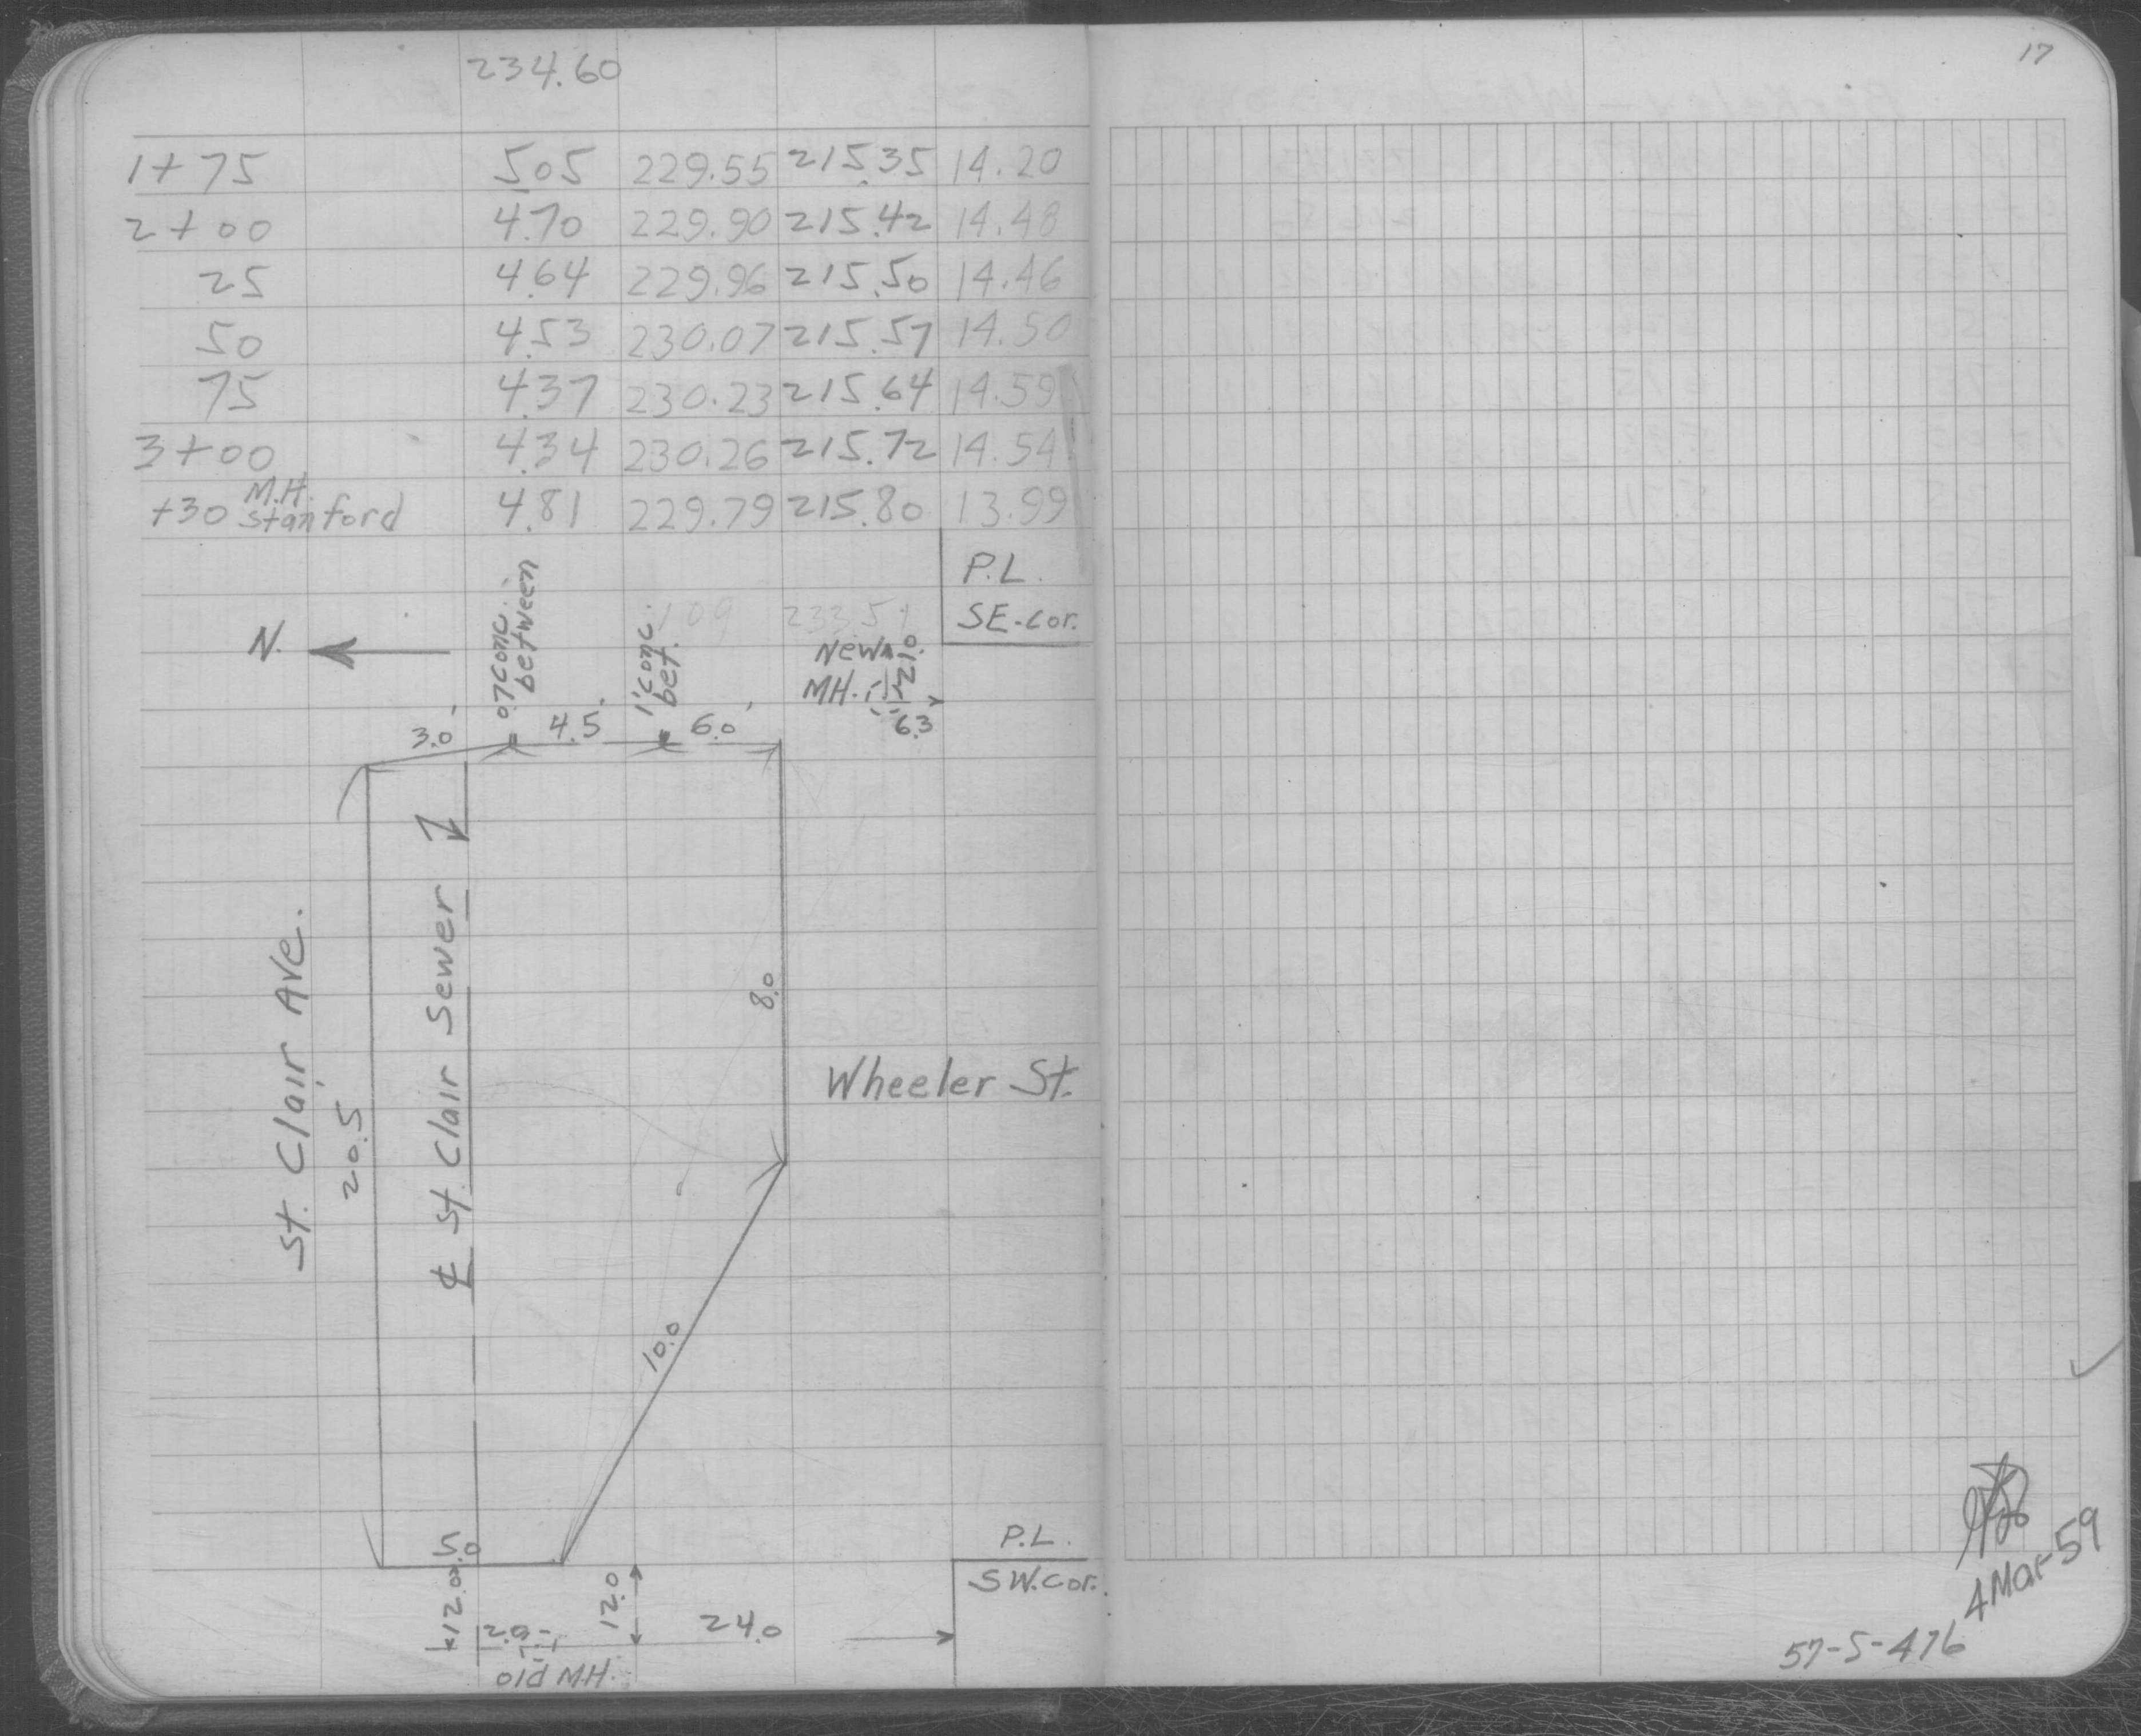 17
234.60
1+75 5.05 229.55 215.35 14.20
2+00 4.70 229.90 215.42 14.48
25 4.64 229.96 215.50 14.46
50 4.53 230.07 215.57 14.50
75 4.37 230.23 215.64 14.59
3+00 4.34 230.26 215.72 14.54
M.H.
+30 Stanford 4.81 229.79 215.80 13.99
P.L.
SE-cor.
N.
0.7 conc.
between
1' conc.
bet.
109
New
MH.
21.0
6.3
3.0'
4.5'
6.0'
St. Clair Ave.
20.5
℄ St. Clair Sewer
8.0
Wheeler St.
10.0
5.0
12.0
12.0
2.0
24.0
old M.H.
P.L.
SW.cor.
4 Mar-59
57-5-476